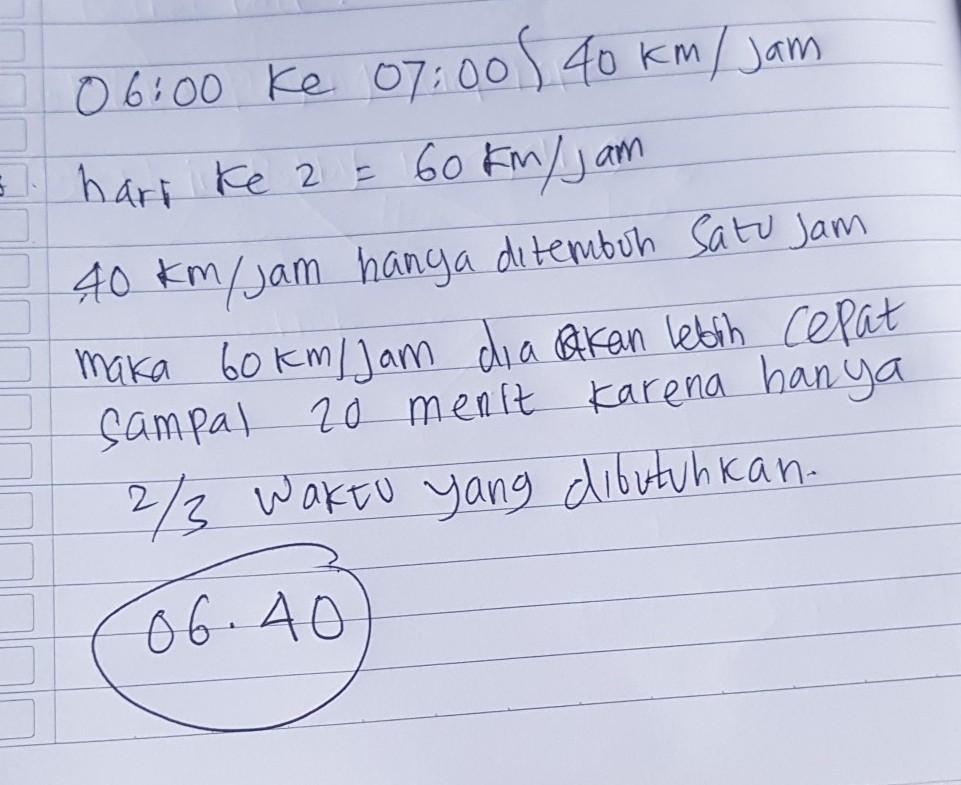 06:00 ke 07:00 40 km/jam
hari ke 2 = 60 km/jam
40 km/jam hanya ditemboh satu jam
maka 60 km/jam dia akan lebih cepat
sampai 20 menit karena hanya
2/3 waktu yang dibutuhkan.
06.40